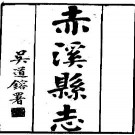 赤溪縣志
吳道鎔署